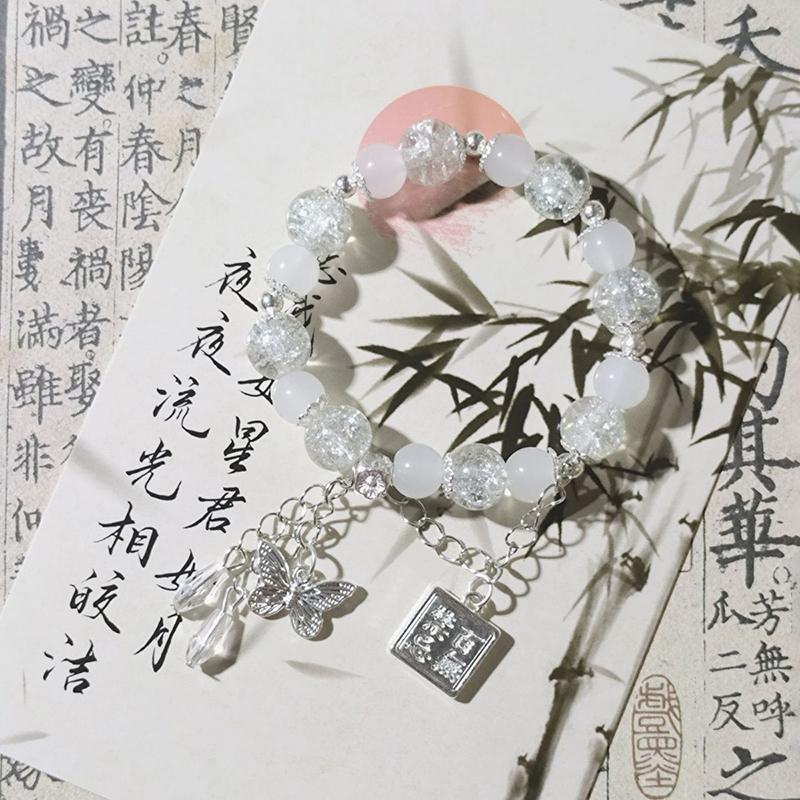 夭
其華
芳無呼
瓜二反
之
賢
春之月
註仲春陰陽
之變有喪禍者娶
禍之故月數滿雖非仲
星君如月
夜夜流光相皎洁